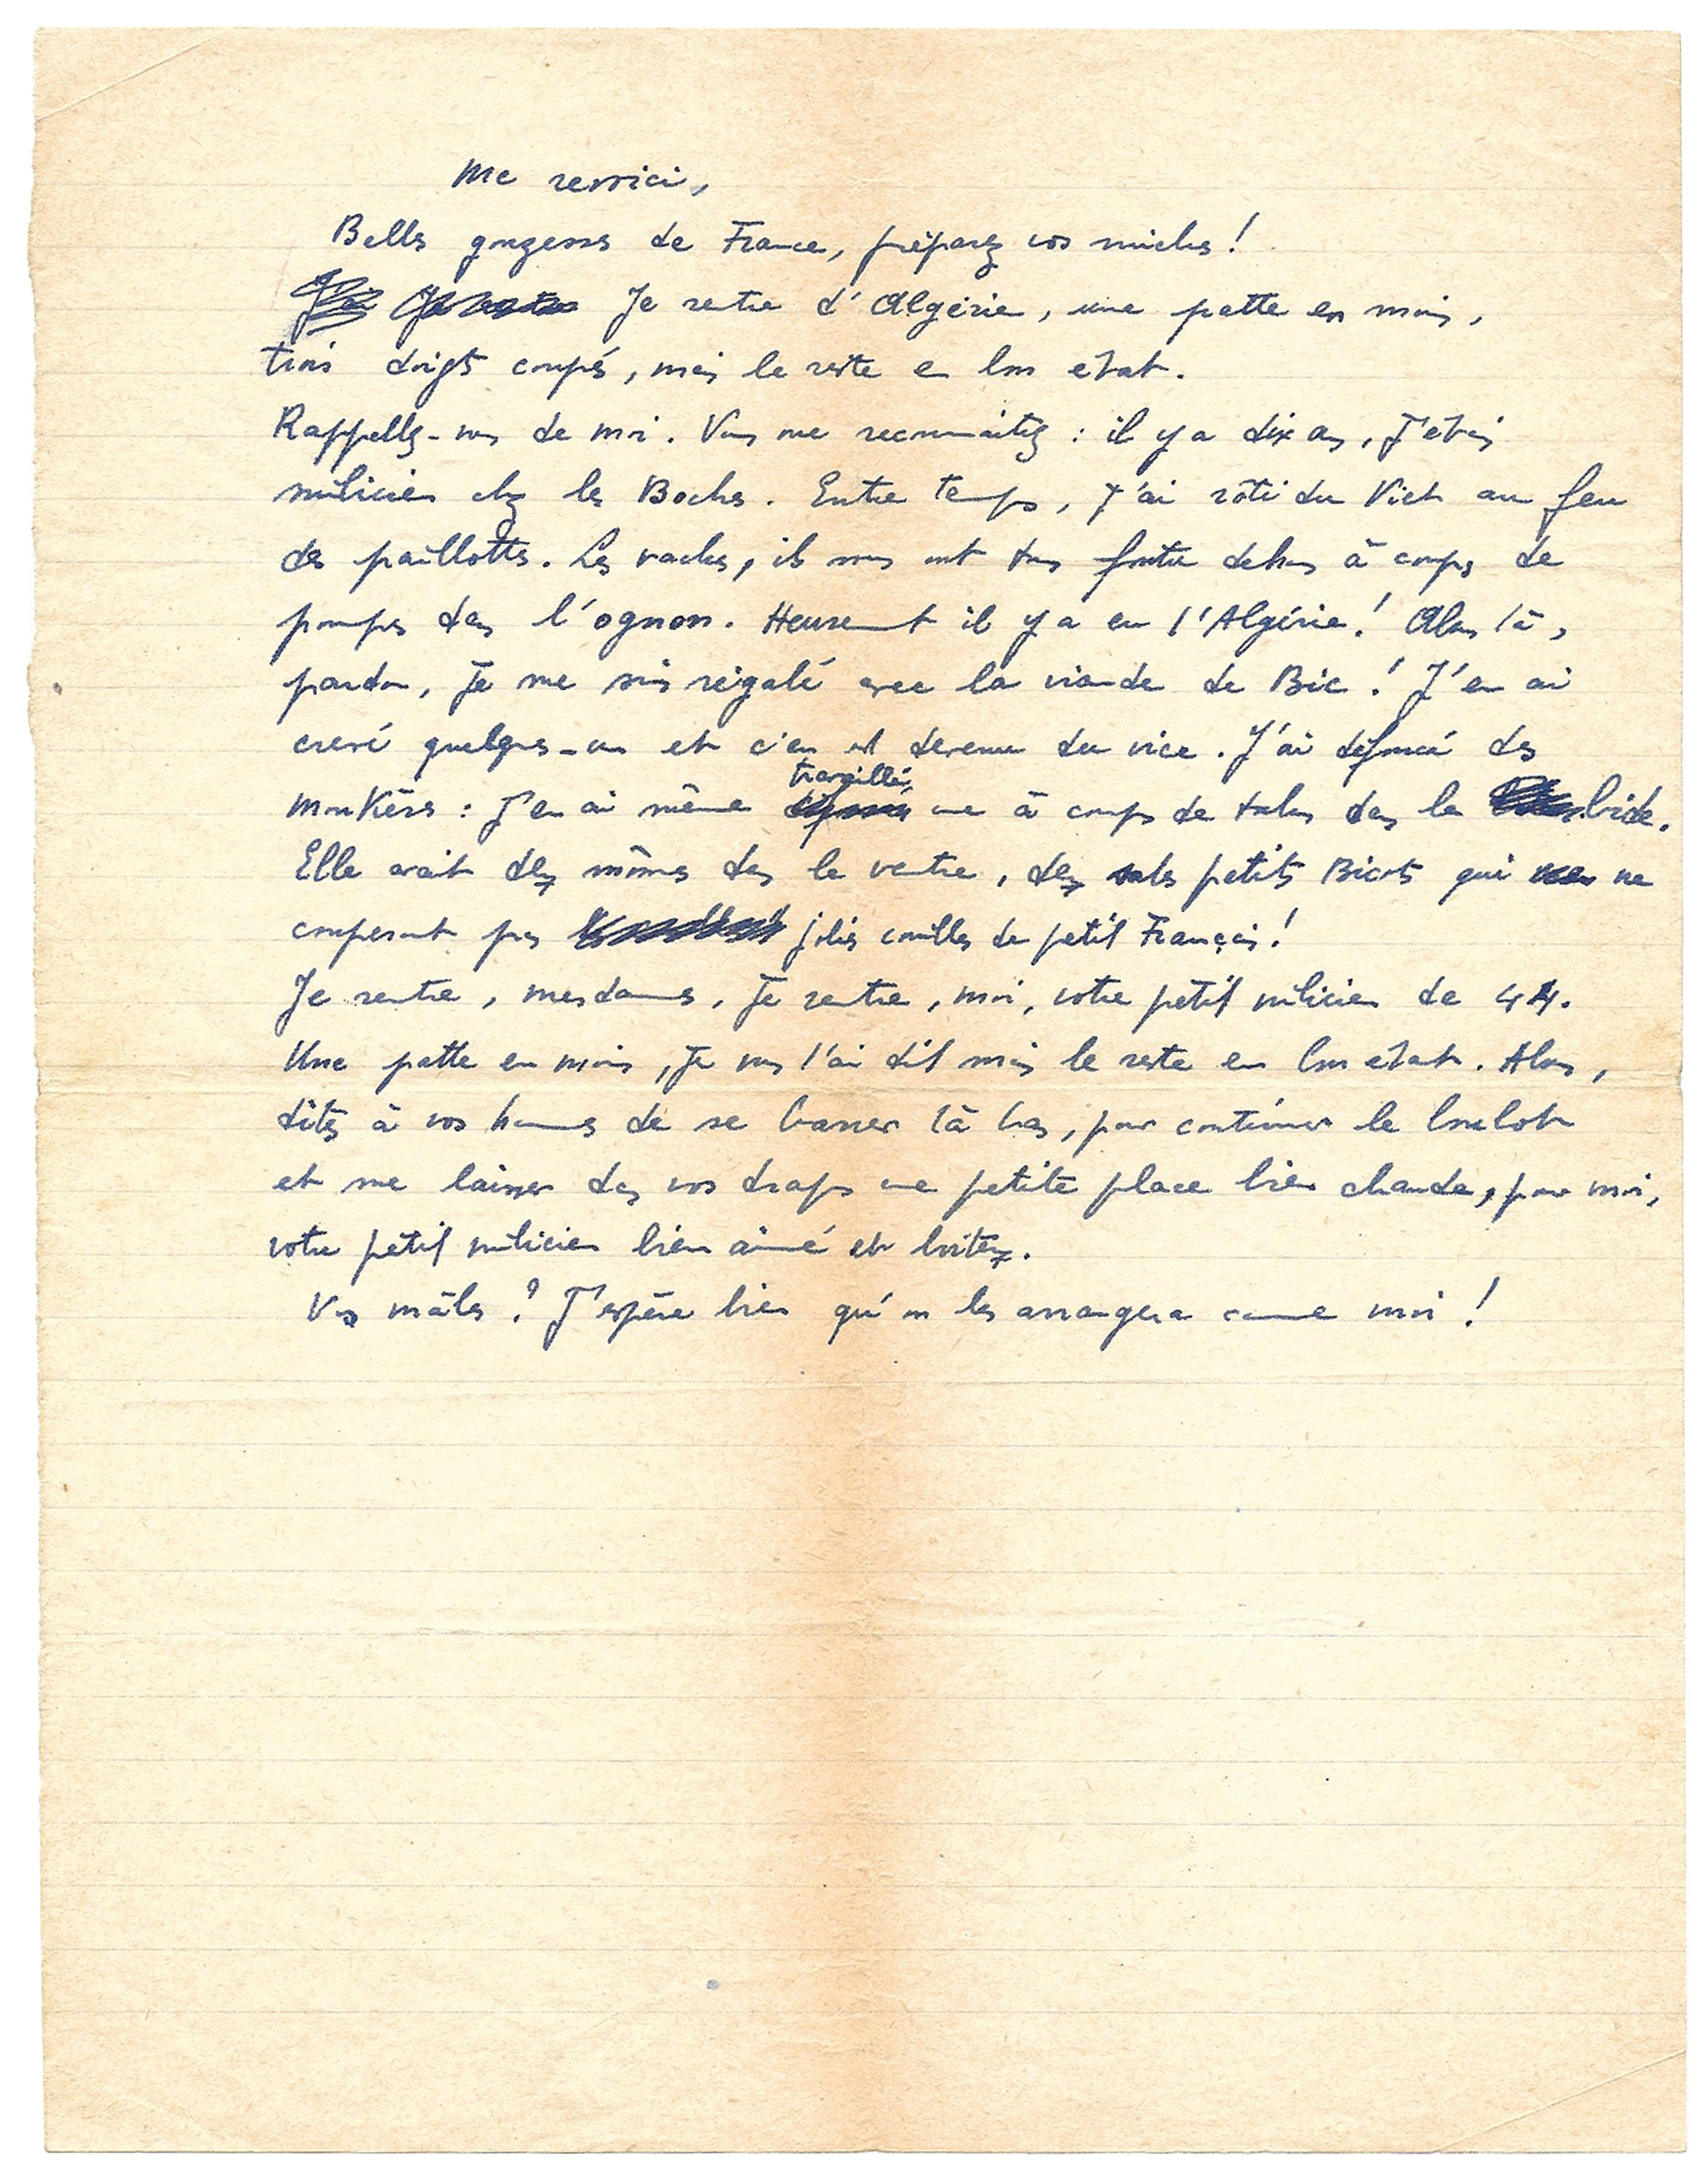 Me revoici,
Belles gonzesses de France, préparez vos miches !
Je rentre d'Algérie, une patte en moins,
trois doigts coupés, mais le reste en bon état.
Rappelez-vous de moi. Vous me reconnaitez : il y a dix ans, j'étais
milicien chez les Boches. Entre temps, j'ai rôti du Viet au feu
des paillottes. Les vaches, ils nous ont tous foutu dehors à coups de
pompes dans l'ognon. Heureusement il y a eu l'Algérie ! Alors là,
pardon, je me suis régalé avec la viande de Bic ! J'en ai
crevé quelques-uns et c'en est devenu du vice. J'ai défoncé des
moukères : j'en ai même travaillé une à coups de talon dans le bide.
Elle avait des mômes dans le ventre, des sales petits Bicots qui ne
couperont pas jolies couilles de petit Français !
Je rentre, mesdames, je rentre, moi, votre petit milicien de 44.
Une patte en moins, je vous l'ai dit mais le reste en bon état. Alors,
dites à vos hommes de se barrer là bas, pour continuer le boulot
et me laisser dans vos draps une petite place bien chaude, pour moi,
votre petit milicien bien aimé et boiteux.
Vos mâles ? J'espère bien qu'on les arrangera comme moi !